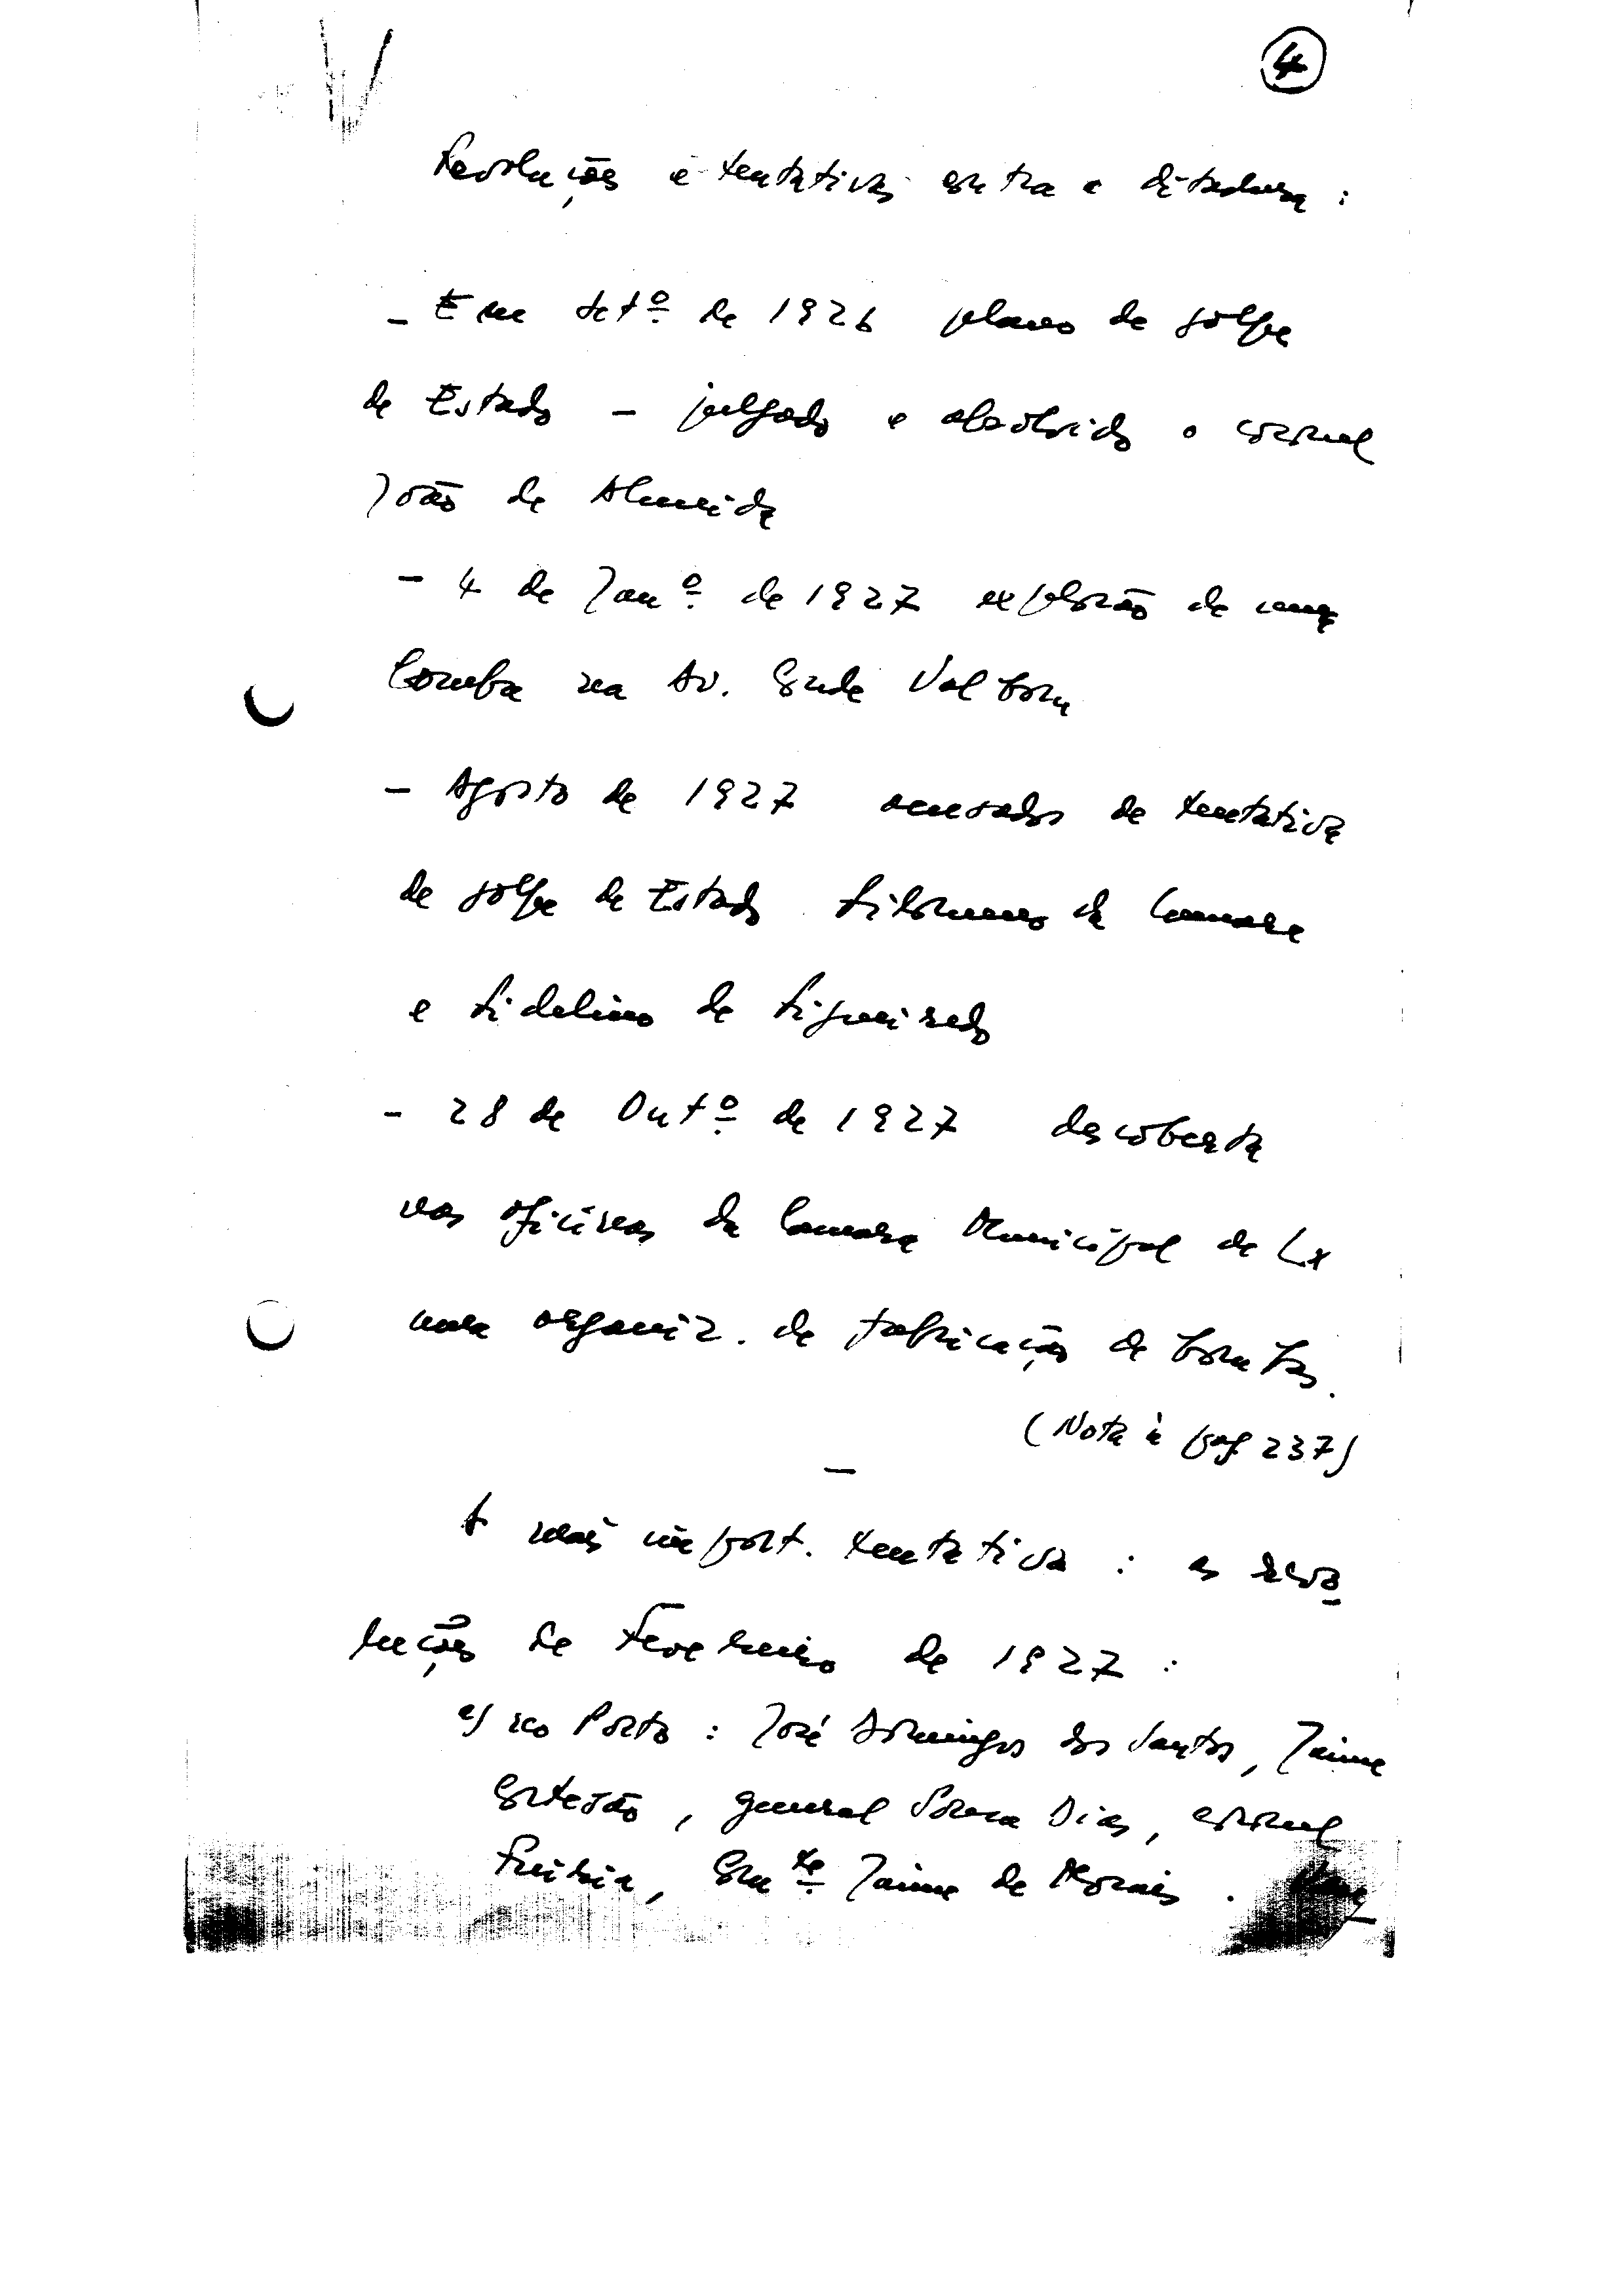 4
Revoluções e tentativas contra a ditadura :
- Em Setº de 1926 plano de golpe
de Estado - julgado e absolvido o coronel
João de Almeida
- 4 de Janº de 1927 explosão de uma
bomba na Av. Conde Valbom
- Agosto de 1927 acusados de tentativa
de golpe de Estado Filomeno da Camara
e Fidelino de Figueiredo
- 28 de Outº de 1927 descoberta
nas oficinas da Camara Municipal de Lx
uma organiz. de fabricação de bombas.
(Nota à pag. 237)
-
A mais import. tentativa : as revo
luções de Fevereiro de 1927 :
a) no Porto : José Domingos dos Santos, Jaime
Cortesão, general Sousa Dias, coronel
Freiria, Comte Jaime de Morais.